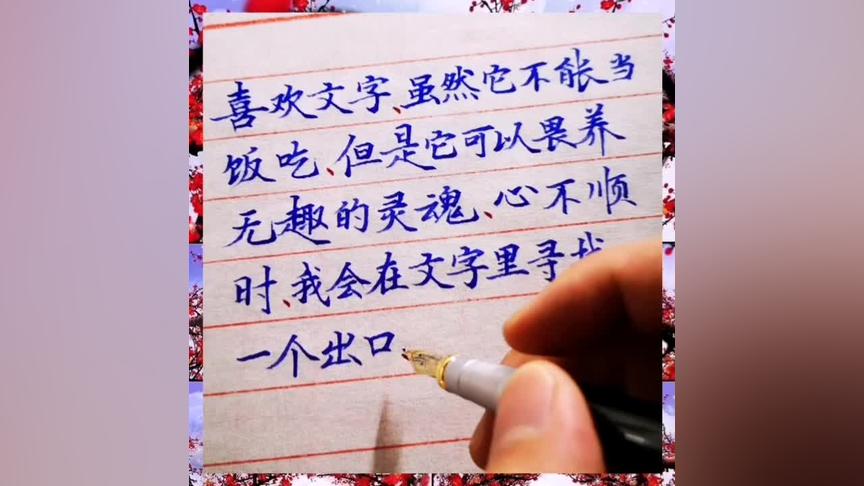 喜欢文字、虽然它不能当
饭吃、但是它可以畏养
无趣的灵魂、心不顺
时、我会在文字里寻找
一个出口